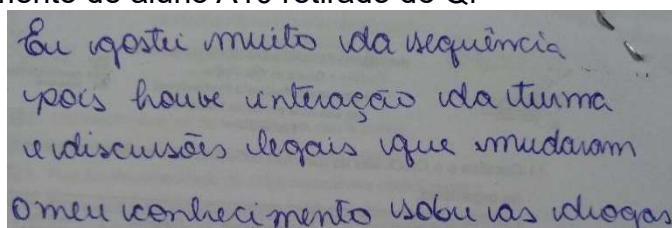 Eu gostei muito da sequência
pois houve interação da turma
e discussões legais que mudaram
o meu conhecimento sobre as drogas